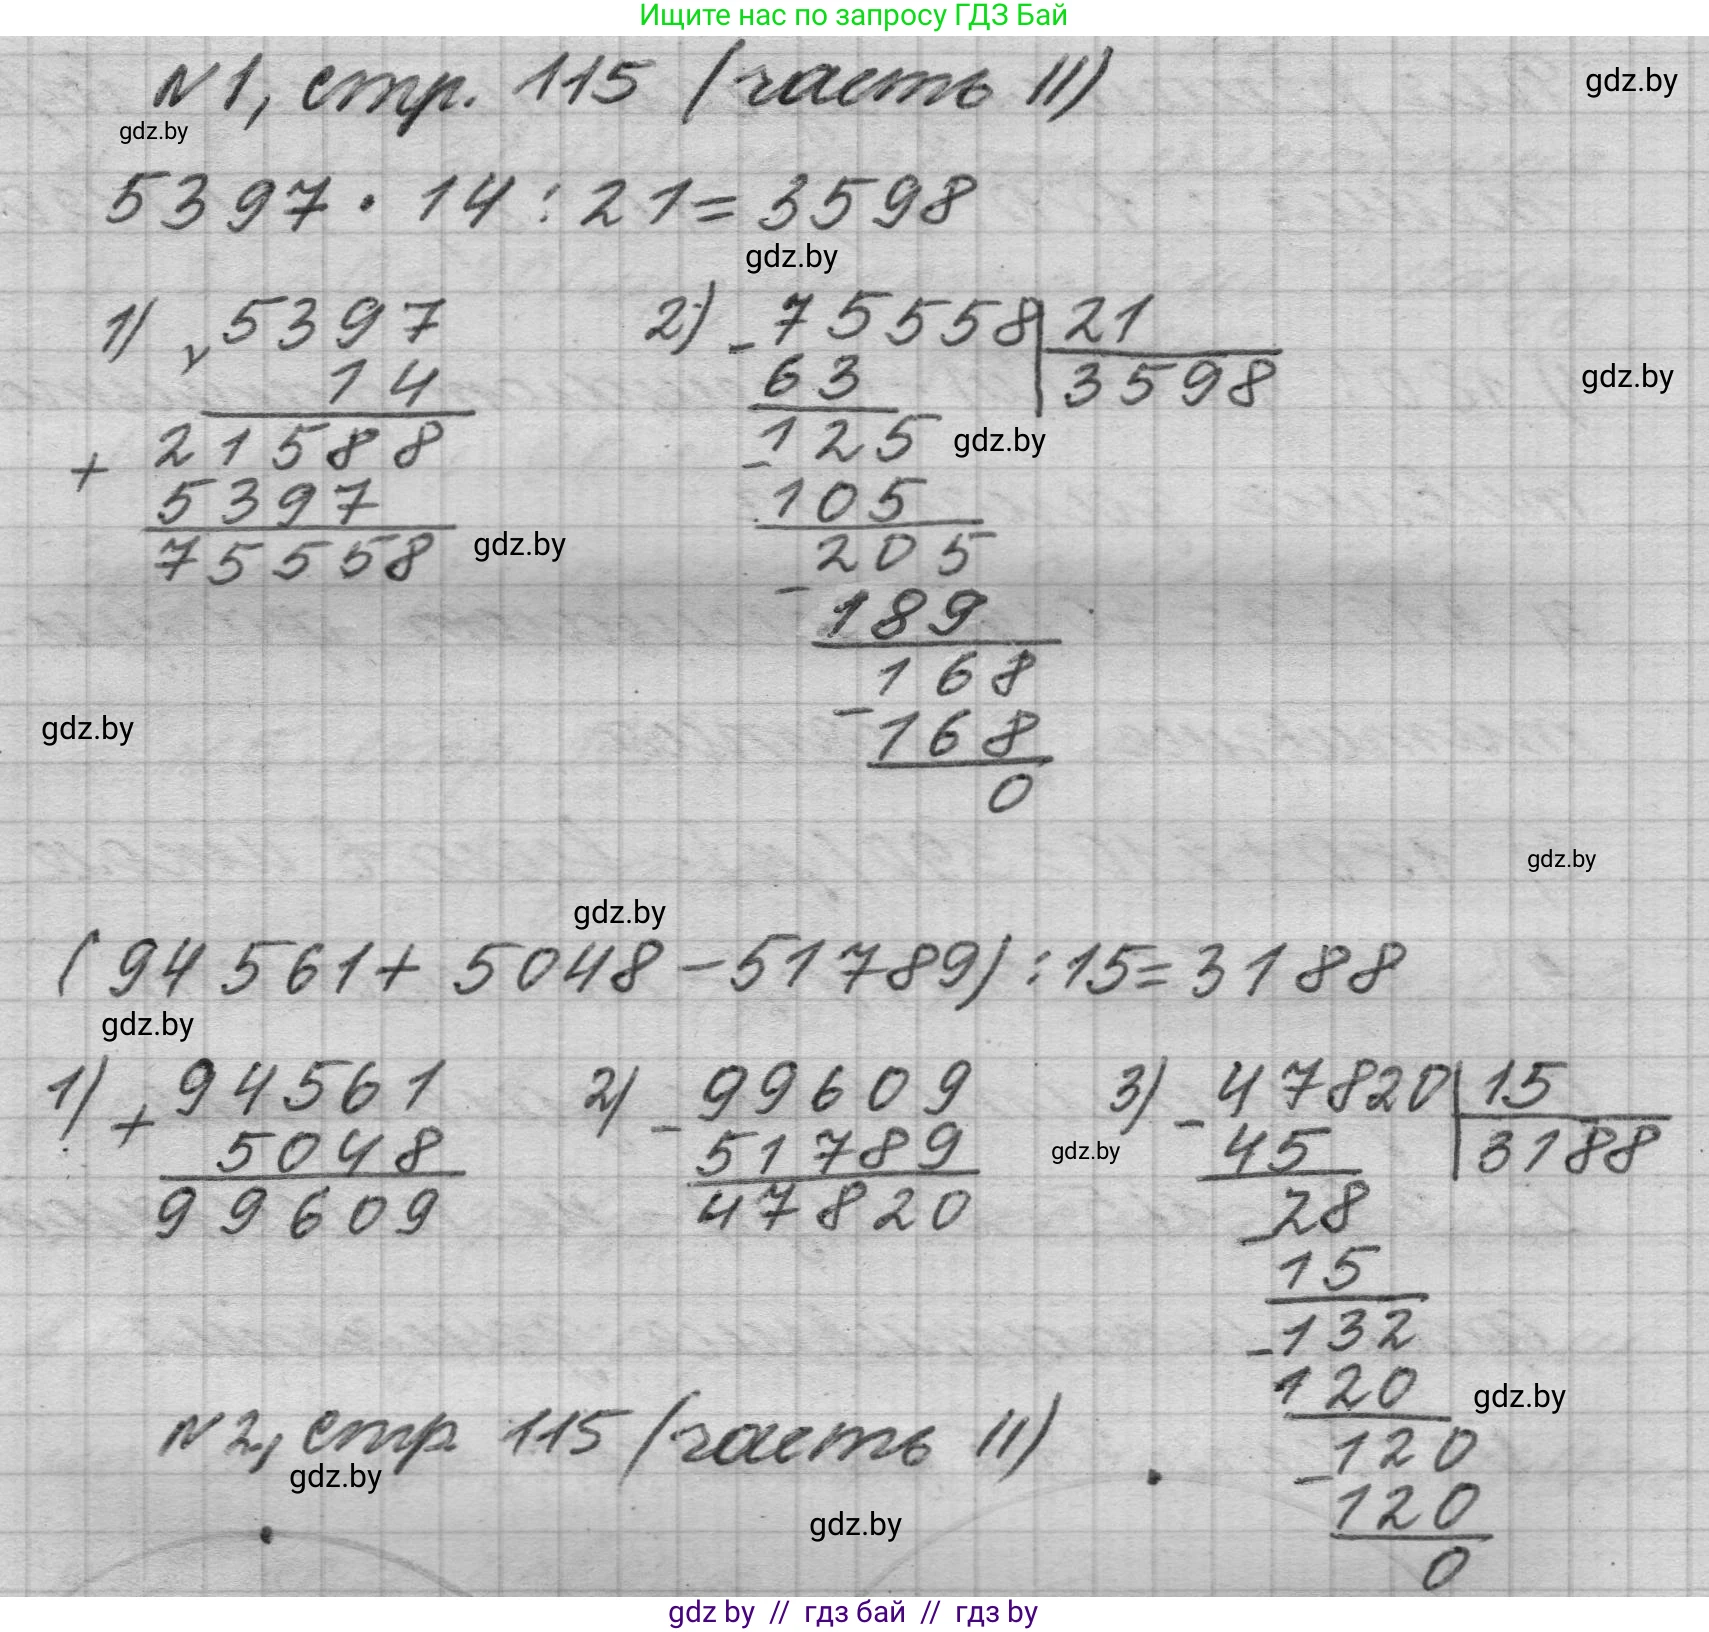 Ищите нас по запросу ГДЗ Бай
N1, стр. 115 (часть II)
gdz.by
gdz.by
5397 · 14 : 21 = 3598
gdz.by
1) × 5397
14
+ 21588
5397
75558
gdz.by
2) - 75558 | 21
63 3598
gdz.by
- 125
gdz.by
105
- 205
189
- 168
168
0
gdz.by
gdz.by
gdz.by
(94 561 + 5048 - 51789) : 15 = 3188
gdz.by
1) + 94561
5048
99609
2) - 99609
51789
47820
gdz.by
3) - 47820 | 15
45 3188
- 28
15
- 132
120
gdz.by
- 120
120
0
N2, стр 115 (часть II)
gdz.by
gdz.by
gdz by // гдз бай // гдз by